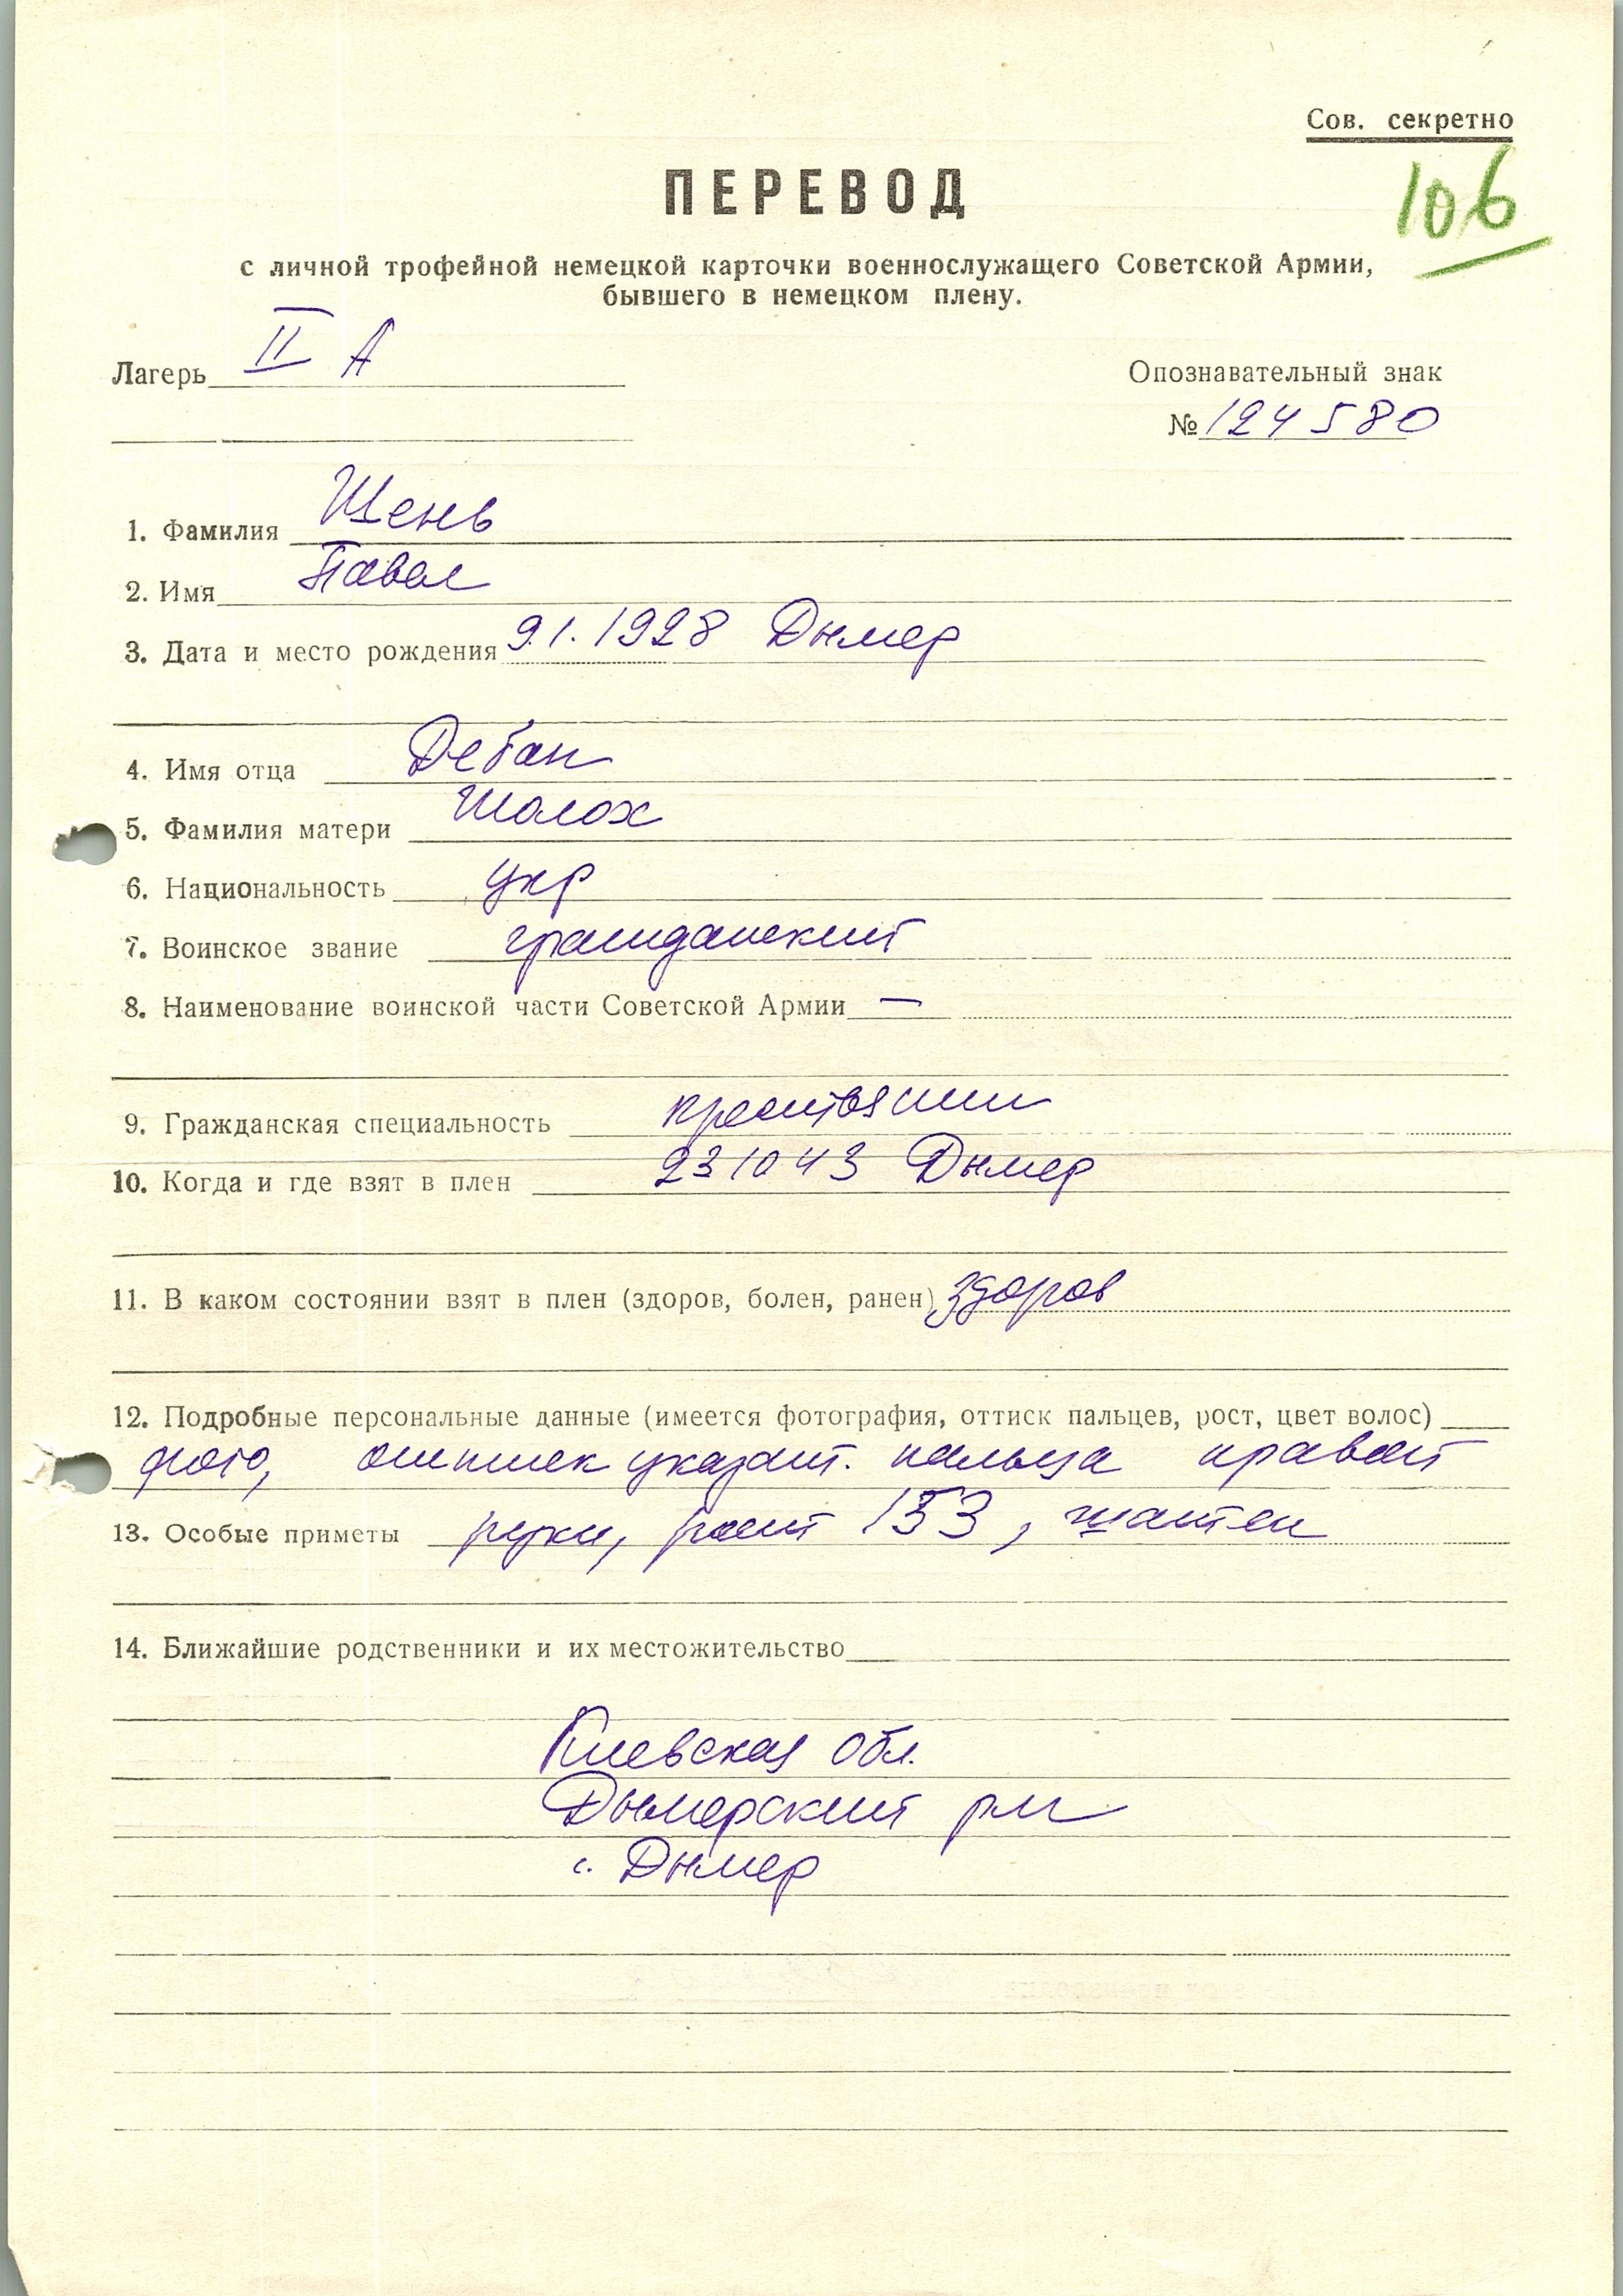 Сов. секретно
106
ПЕРЕВОД
с личной трофейной немецкой карточки военнослужащего Советской Армии,
бывшего в немецком плену.
Лагерь II А
Опознавательный знак
№ 124580
1. Фамилия Щень
2. Имя Павел
3. Дата и место рождения 9.1.1928 Дымер
4. Имя отца
5. Фамилия матери Шолох
6. Национальность укр
7. Воинское звание гражданский
8. Наименование воинской части Советской Армии —
9. Гражданская специальность крестьянин
10. Когда и где взят в плен 231043 Дымер
11. В каком состоянии взят в плен (здоров, болен, ранен) здоров
12. Подробные персональные данные (имеется фотография, оттиск пальцев, рост, цвет волос)
фото, оттиск указат. пальца правой
13. Особые приметы руки, рост 153, шатен
14. Ближайшие родственники и их местожительство
Киевская обл.
Дымерский рн
с. Дымер